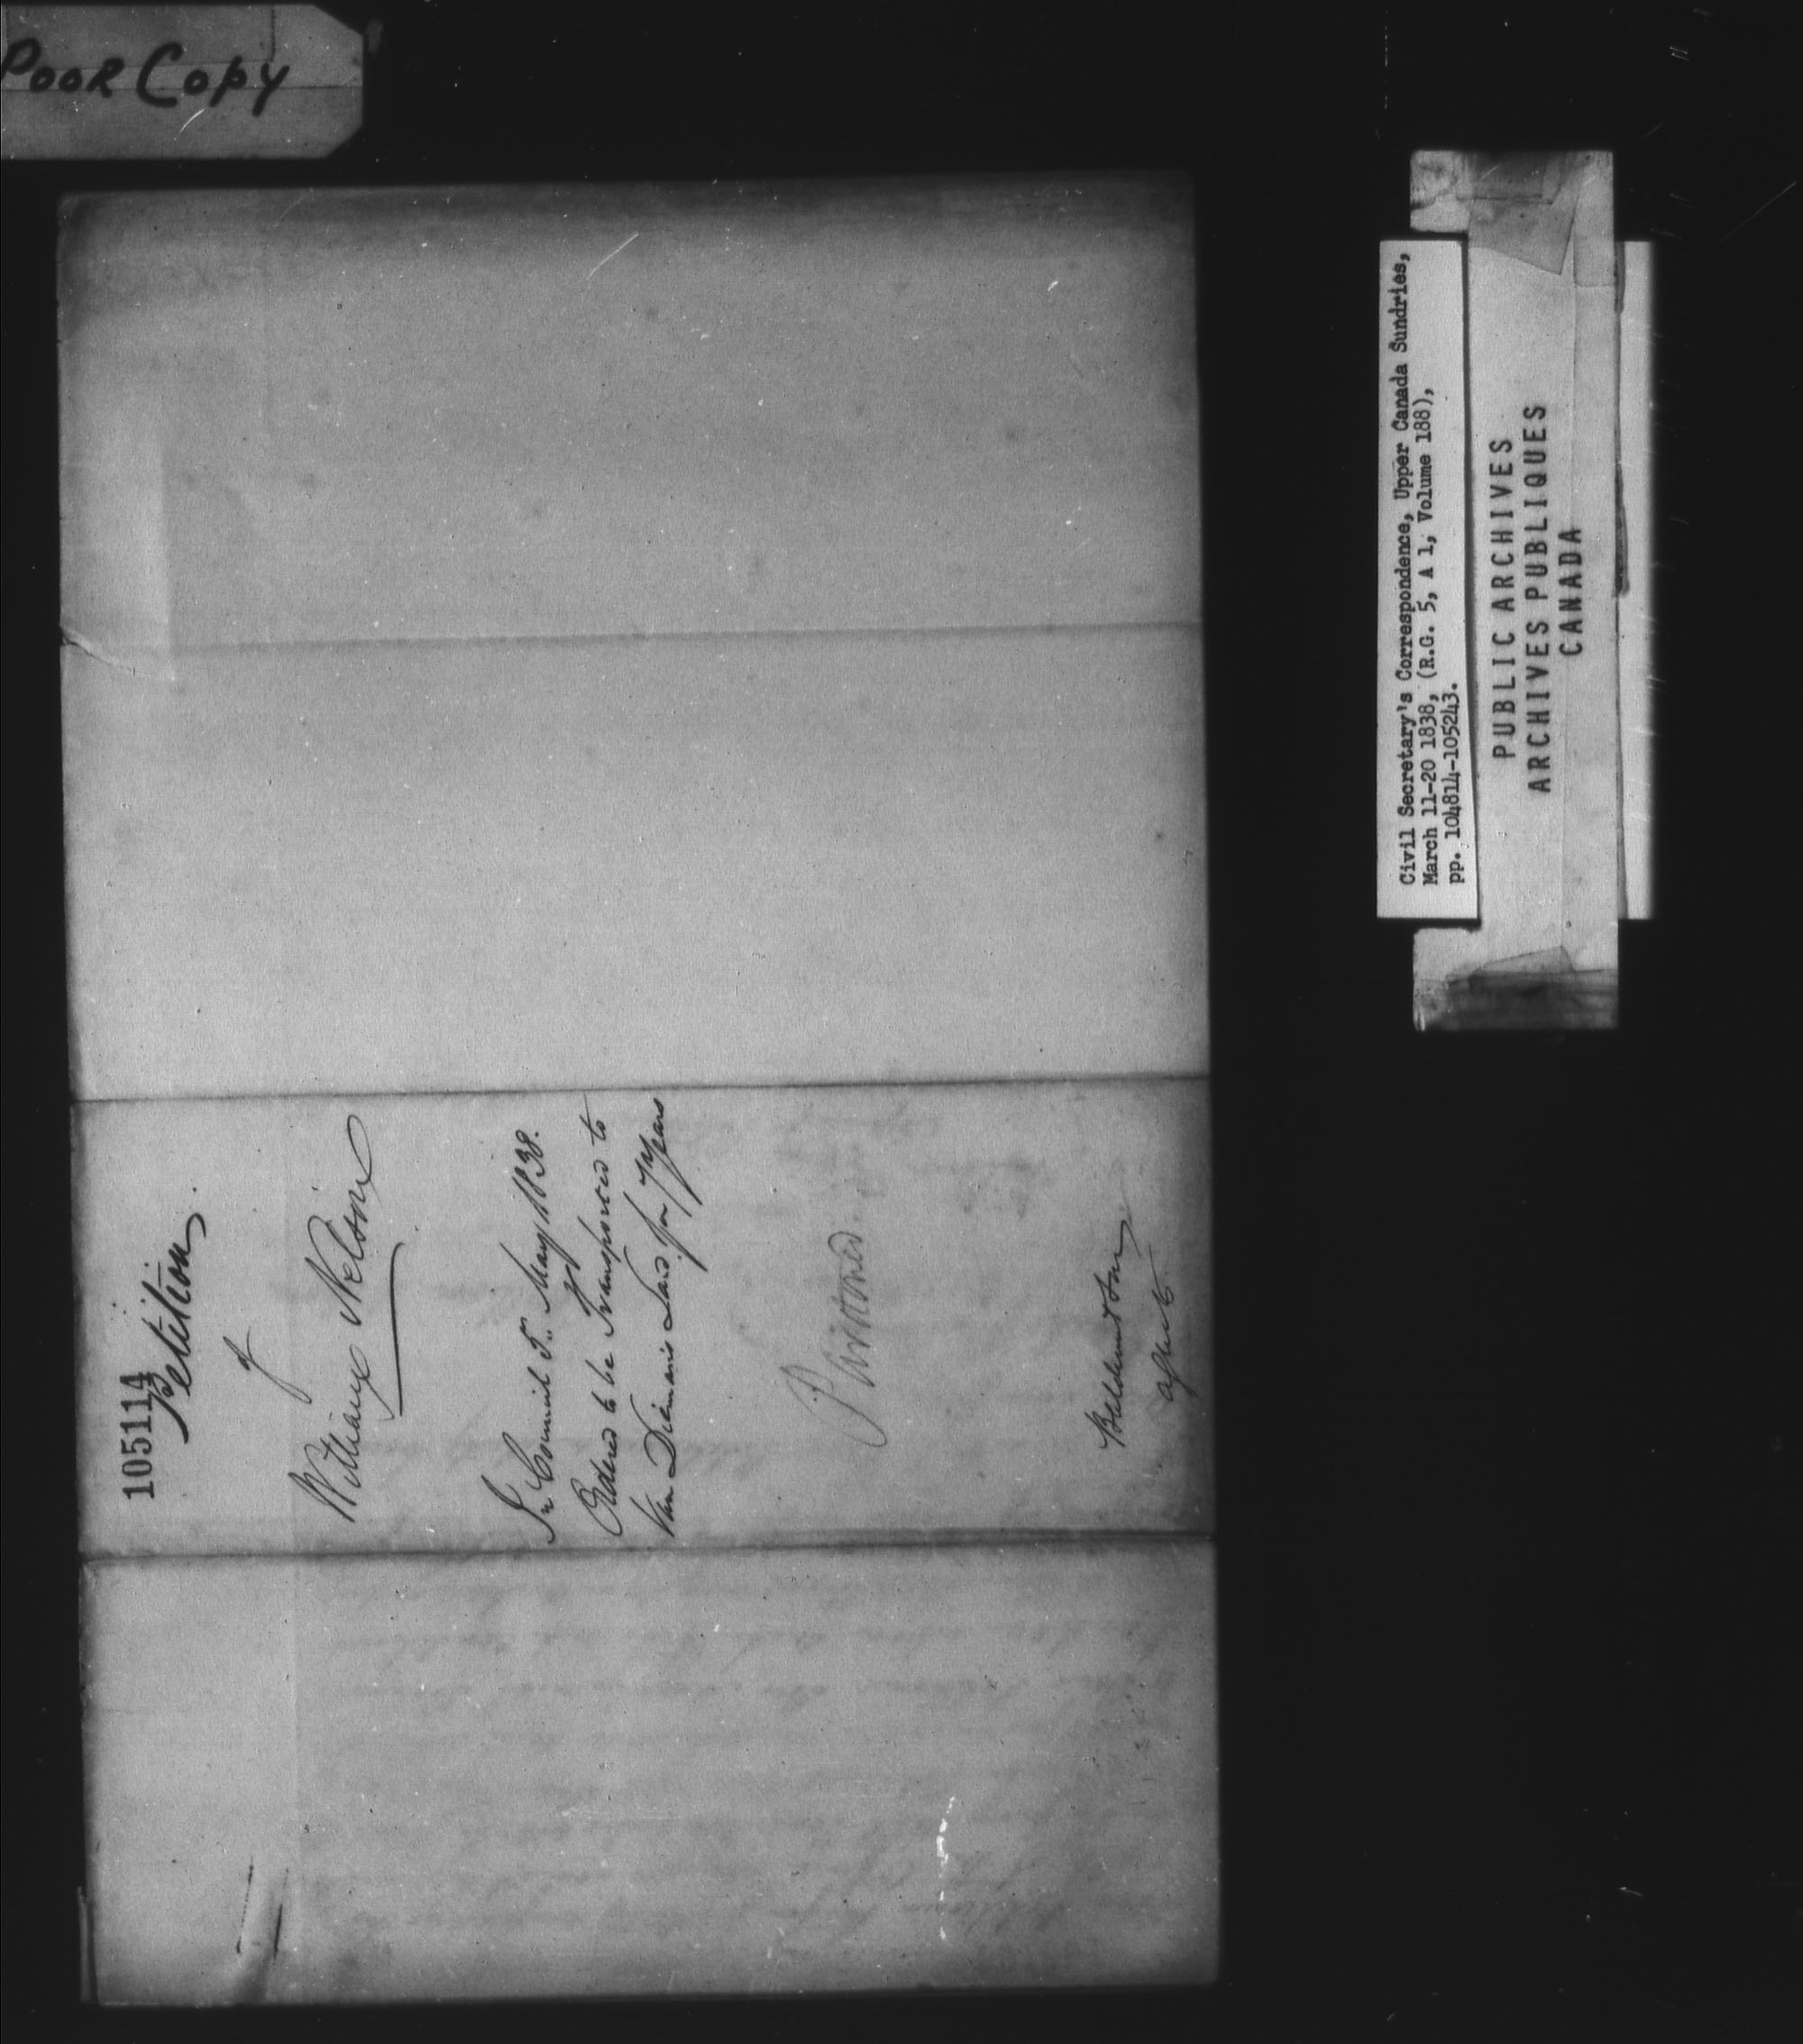 Poor Copy
105114
Petition
of
William Nelson
In Council 5th May 1838.
Ordered to be Transported to
Van Diemans Land for 7 Years
Pardoned.
Baldwin & Son
agents
Civil Secretary's Correspondence, Upper Canada Sundries,
March 11-20 1838, (R.G. 5, A 1, Volume 188),
pp. 104814-105243.
PUBLIC ARCHIVES
ARCHIVES PUBLIQUES
CANADA